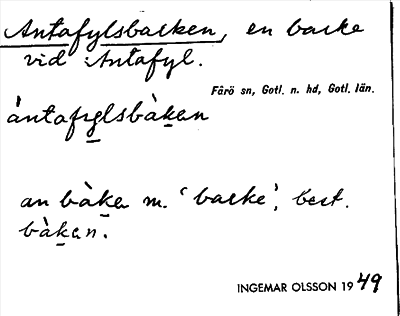 Antafylsbacken, en backe
vid Antafyl.
Fårö sn, Gotl. n. hd, Gotl. län.
àntafylsbàken
an bàkɐ m. ‘backe’, best.
bàkɐn.
INGEMAR OLSSON 1949